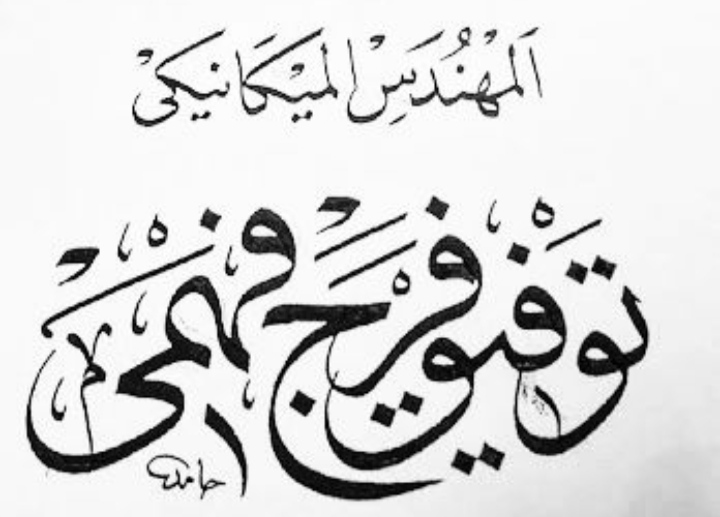 اَلْمُهَنْدِسْ الْمِيْكَانِيكِىْ
تَوْفِيْق فَرَج فَهْمِىْ
حامد